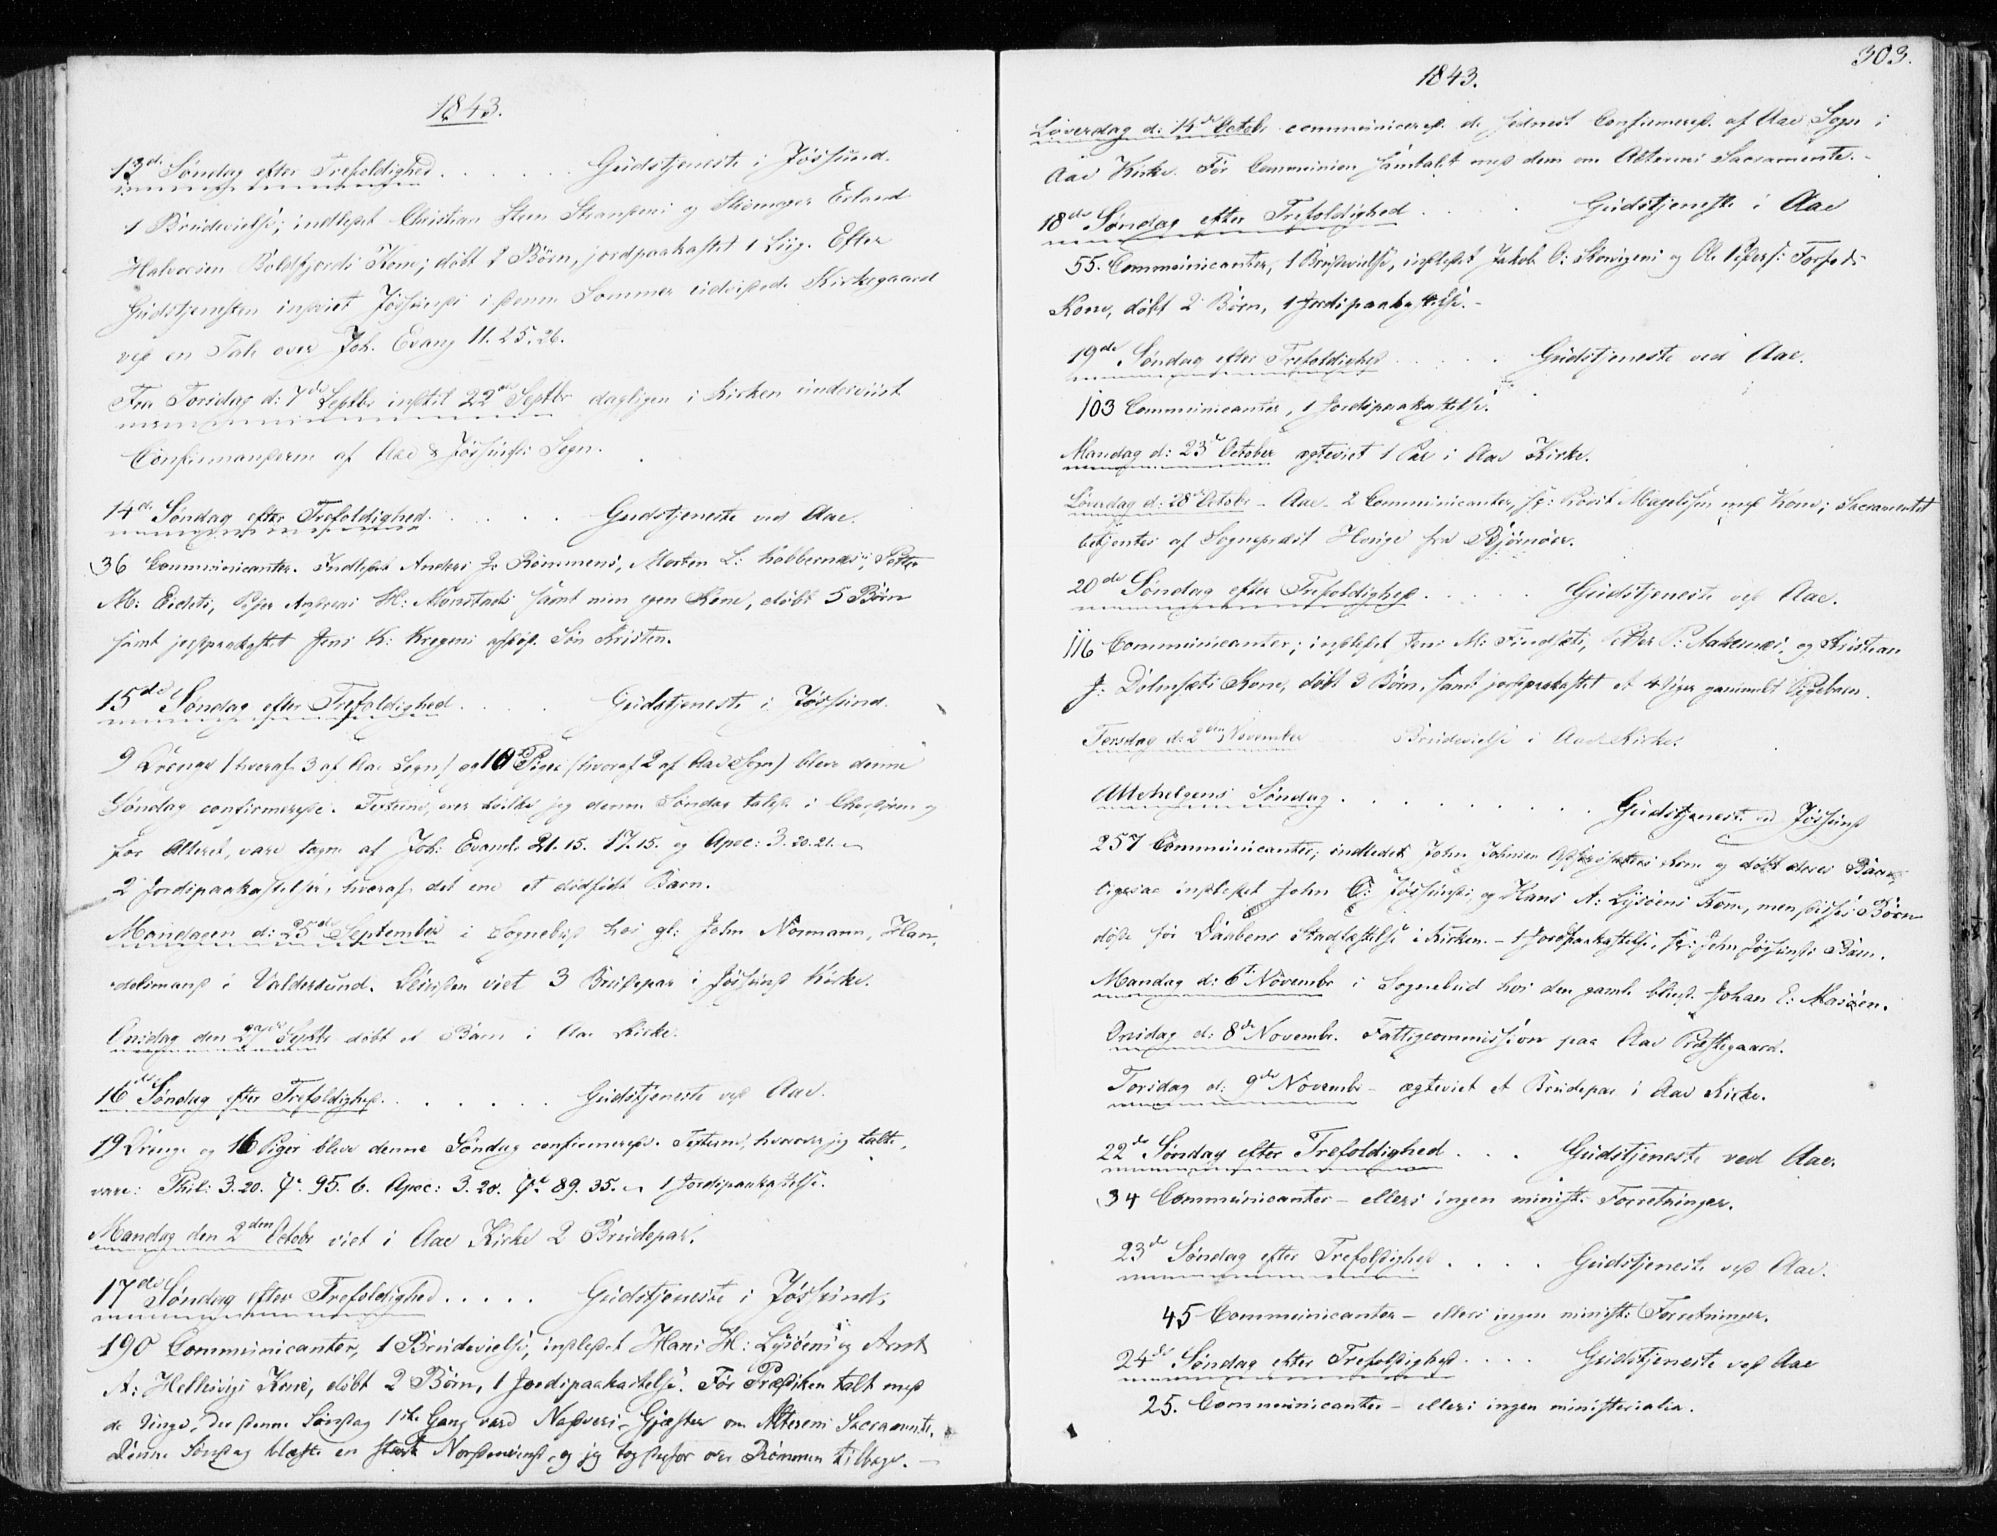 1843.
13de Søndag efter Trefoldighed . . . . . . Gudstjeneste i Jøssund.
1 Brudevielse; indledet Christian Steen Stranseni og Erland
Halvorsen Boldsfjords Kone; døbt 2 Børn, jordpaakastet 1 Liig. Efter
Gudstjenesten indviet Jøssunds i denne Sommer udvidede Kirkegaard
ved en Tale over Joh. Evang 11. 25. 26.
Fra Torsdag d: 7de Septbr indtil 22de Septbr dagligen i Kirken underviist
Confirmanderne af Aae & Jøssunds Sogn.
14de Søndag efter Trefoldighed. . . . . . Gudstjeneste ved Aae.
36 Communicanter. Indledet Anders J: Rømmens, Morten L: Kobbernæs, Petter
M: Eidets, Peder Andreas H: Monstads samt min egen Kone, døbt 5 Børn
samt jordpaakastet Jens K: Kregens Søn Kristen.
15de Søndag efter Trefoldighed . . . . Gudstjeneste i Jøssund.
9 Drenge (hvoraf 3 af Aae Sogn) og 10 Piger (hvoraf 2 af Aae Sogn) bleve denne
Søndag confirmerede. Texterne, over hvilke jeg denne Søndag talede i Chordøren og
for Alteret, vare tagne af Joh: Evang. 21. 15. 17. 15. og Apoc: 3. 20. 21.
2 Jordspaakastelser, hvoraf det ene et dødfødt Barn.
Mandagen d: 25de September i Sognebud hos gl: John Normann, Han-
delsmand i Valdersund. Ligesaa viet 3 Brudepar i Jøssund Kirke.
Onsdag den 27de Septbr døbt et Barn i Aae Kirke.
16de Søndag efter Trefoldighed. . . . . . . Gudstjeneste ved Aae.
19 Drenge og 16 Piger bleve denne Søndag confirmerede. Texterne, hvorover jeg talte,
vare: Phil: 3. 20. Ps. 95. 6. Apoc: 3. 20. Ps. 89. 35. 1 Jordspaakastelse.
Mandag den 2den Octobr viet i Aae Kirke 2 Brudepar.
17de Søndag efter Trefoldighed . . . . . Gudstjeneste i Jøssund.
190 Communicanter, 1 Brudevielse, indledet Hans H: Lysøens og Arnt
A: Hellesvigs Kone, døbt 2 Børn, 1 Jordspaakastelse. Før Prædiken talt med
de Unge, der denne Søndag 1ste Gang vare Nadverens Gjæster om Alterens Sacramente.
Denne Søndag blæste en stærk Nordenvind, og jeg tog derfor over Rømmen tilbage.
303.
1843.
Løverdag d: 14de Octobr communicerede de sidst Confirmerede af Aae Sogn i
Aae Kirke. Før Communion samtalet med dem om Alterens Sacramente.
18de Søndag efter Trefoldighed . . . . Gudstjeneste i Aae
55. Communicanter, 1 Brudevielse, indledet Jakob O: Skovigens og Ole Peders:
Kone, døbt 2 Børn, 1 Jordspaakastelse.
19de Søndag efter Trefoldighed . . . . . Gudstjeneste ved Aae.
103 Communicanter, 1 Jordspaakastelse.
Mandag d: 23de October ægteviet 1 Par i Aae Kirke.
Løverdag d: 28de Octobr Aae. 2 Communicanter, Provst Magelssen med Kone; Sacramentet
betjentes af Sognepræst fra Bjørnør.
20de Søndag efter Trefoldighed . . . . . Gudstjeneste ved Aae.
116 Communicanter; indledet Jens M: Petter P: og Kristian
J: Dolmsæts Kone, døbt 3 Børn, samt jordpaakastet et 4 Uger gammelt Pigebarn.
Torsdag d: 2den November Brudevielse i Aae Kirke.
Allehelgens Søndag . . . . . . . . Gudstjeneste ved Jøssund
257 Communicanter; indledet John Johnsen Kone og døbt deres Barn,
ligesaa indledet John O: Jøssunds og Hans A: Lysøens Kone, men disses Børn
døde før Daabens Stadfæstelse i Kirken. – 1 Jordpaakastelse, John Jøssunds Barn.
Mandag d: 6te Novembr i Sognebud hos den gamle blinde Johan E: Masøen.
Onsdag d: 8de Novembr. Fattigcommission paa Aae Præstegaard.
Torsdag d: 9de Novembr – ægteviet et Brudepar i Aae Kirke.
22de Søndag efter Trefoldighed . . . Gudstjeneste ved Aae.
34 Communicanter – ellers ingen minist: Forretninger.
23de Søndag efter Trefoldighed . . . . Gudstjeneste ved Aae.
45 Communicanter – ellers ingen minist: Forretninger.
24de Søndag efter Trefoldighed . . . . Gudstjeneste ved Aae
25. Communicanter – ellers ingen ministerialia.